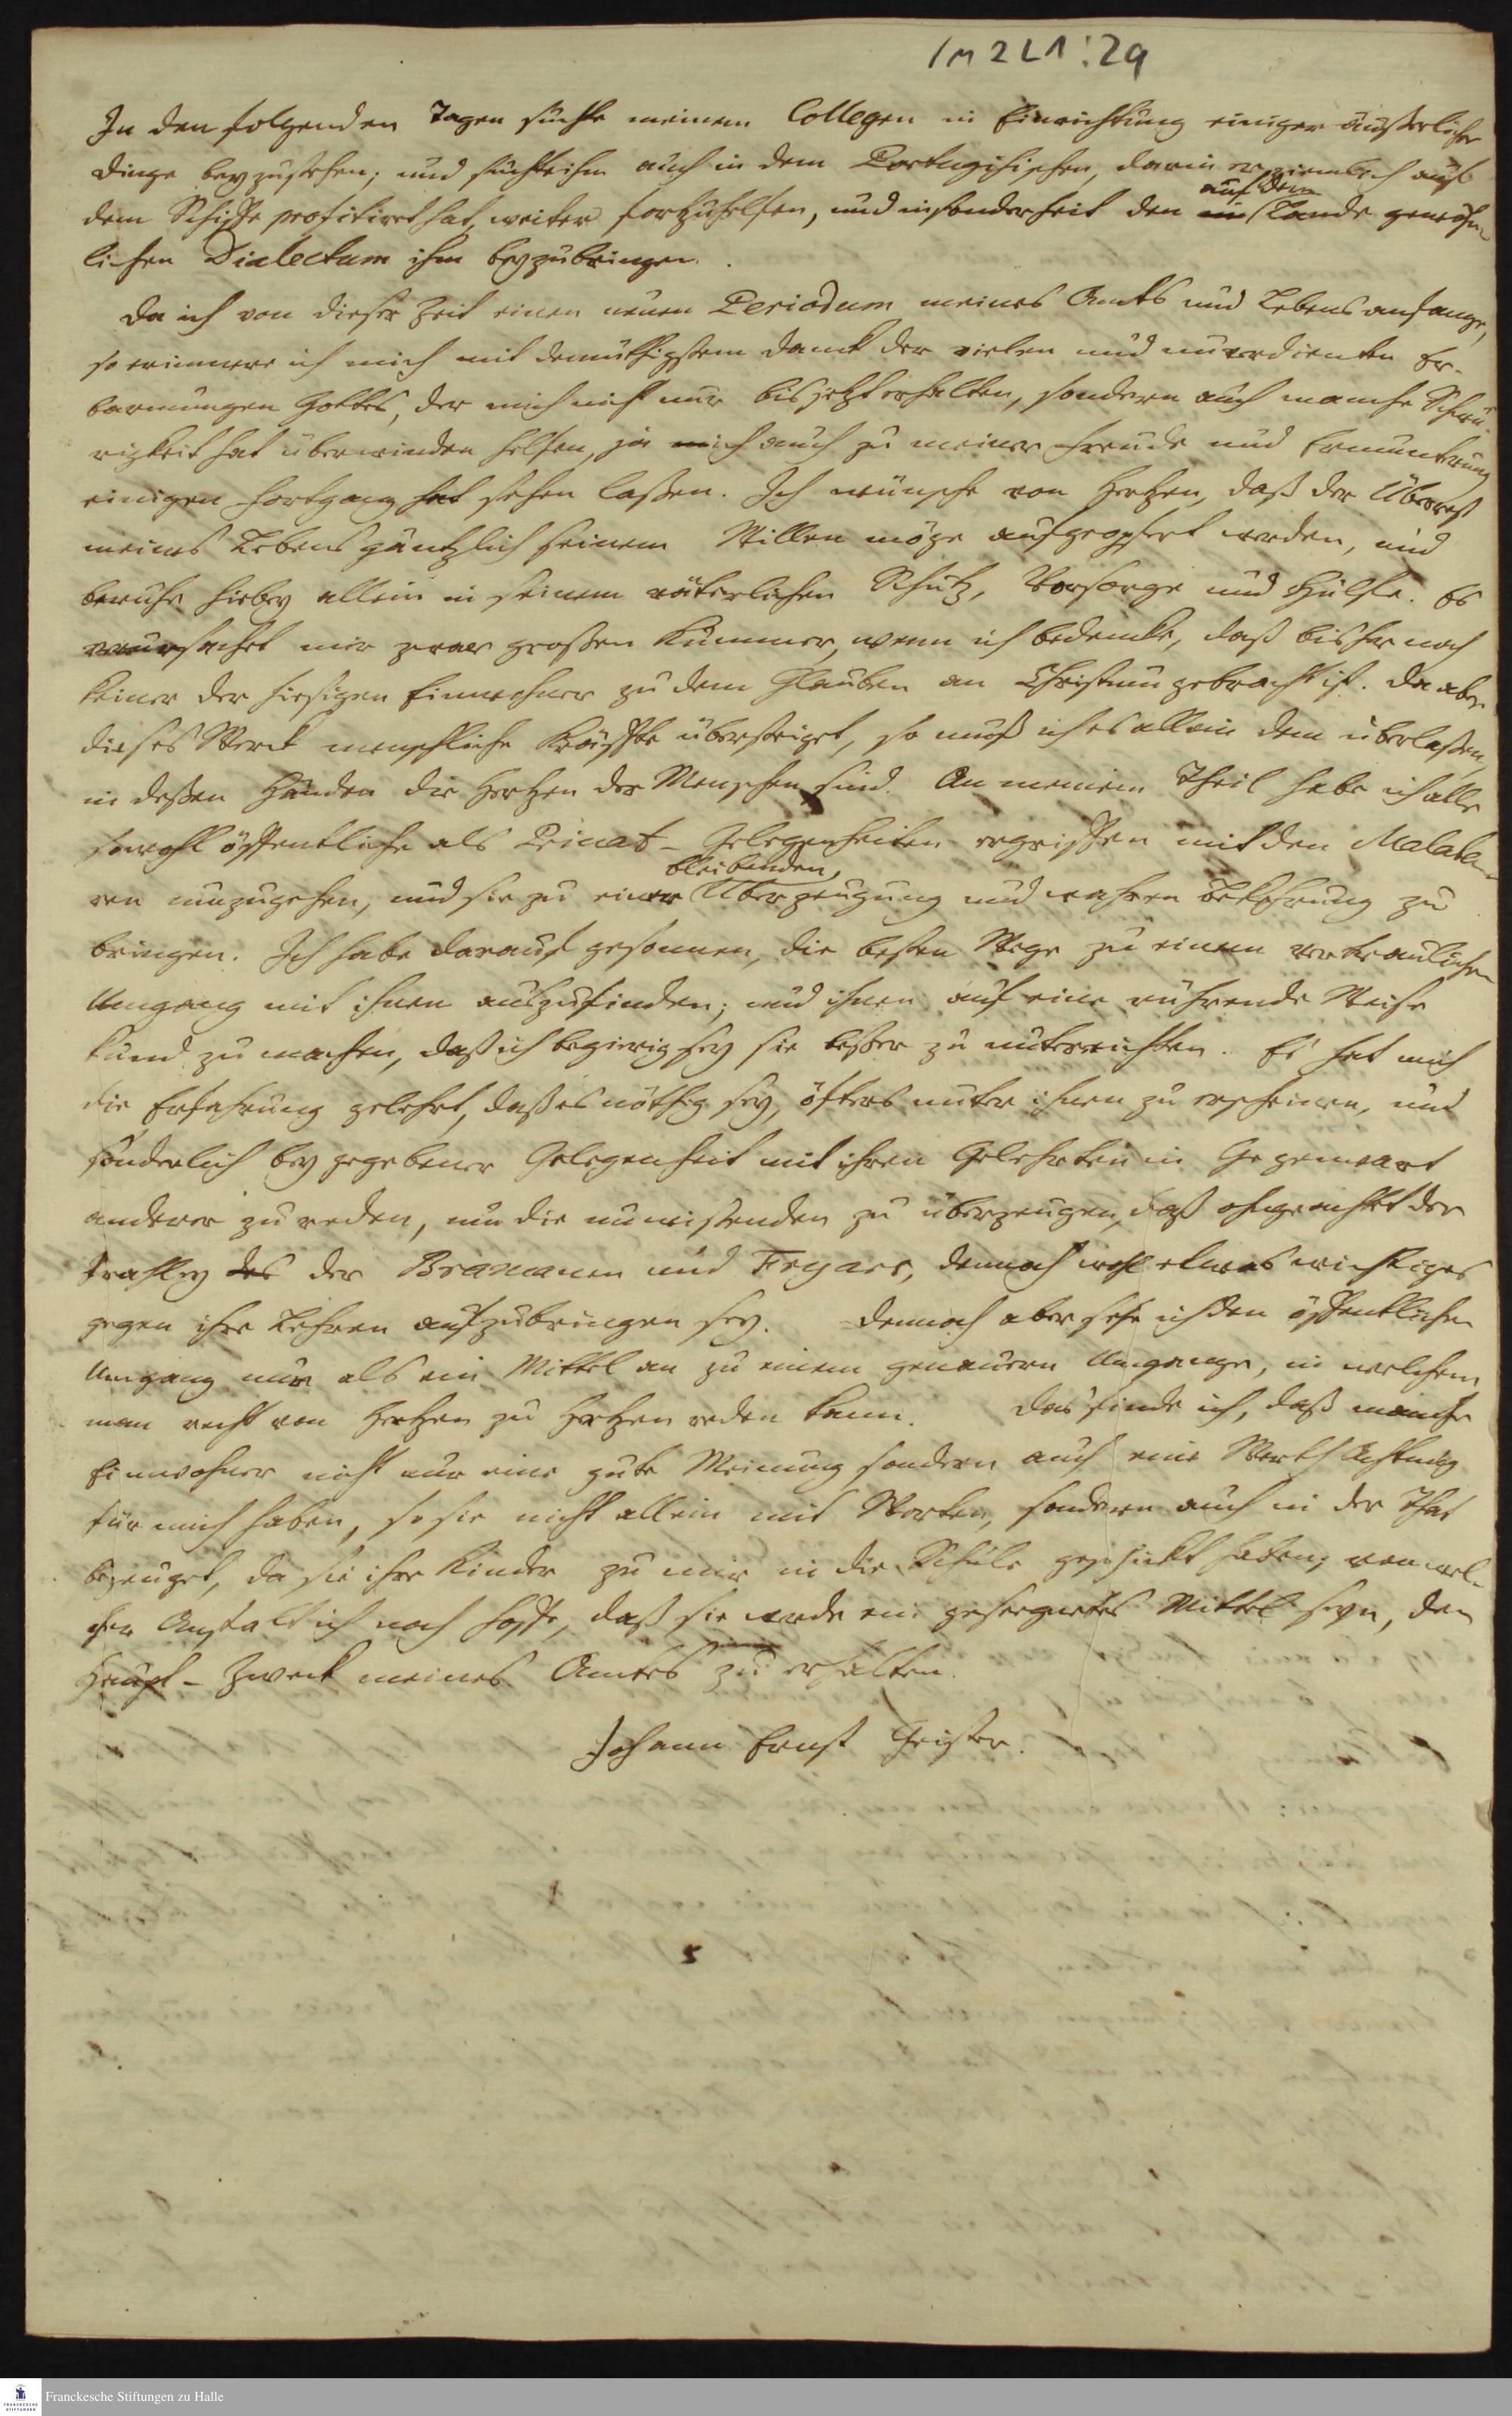 1M 2 L1:29
In den folgenden Tagen suchte meinem Collegen in Einrichtung einiger äußerlicher
Dinge beyzustehen; und suchte ihm auch in dem Portugisischen, darin er ziemlich auf
auf dem
dem Schiffe profitiret hat, weiter fortzuhelfen, und insonderheit den im Lande gewöhn-
lichen Dialectum ihm beyzubringen.
Da ich von dieser Zeit einen neuen Periodum meines Amts und Lebens anfange,
so erinnere ich mich mit demüthigstem Danck der vielen und unverdienten Er-
barmungen Gottes, der mich nicht nur bis jetzt erhalten, sondern auch manche Schwü-
rigkeit hat überwinden helfen, ja mich auch zu meiner Freude und Ermunterung
einigen Fortgang hat sehen laßen. Ich wünsche von Hertzen, daß der Überrest
meines Lebens gäntzlich seinem Willen möge aufgeopfert werden, und
beruhe hiebey allein in seinem väterlichen Schutz, Vorsorge und Hülfe. Es
verursachet mir zwar großen Kummer, wenn ich bedencke, daß bisher noch
keiner der hiesigen Einwohner zu dem Glauben an Christum gebracht ist. Da aber
dieses Werck menschliche Kräffte übersteiget, so muß ich es allein dem überlaßen,
in deßen Händen die Hertzen der Menschen sind. An meinem Theil habe ich alle
sowohl öffentliche als Privat-Gelegenheiten ergriffen mit den Malaba-
bleibenden,
ren umzugehen, und sie zu einer Überzeugung und wahren Bekehrung zu
bringen. Ich habe darauf gesonnen, die besten Wege zu einem vertraulichen
Umgang mit ihnen auszufinden; und ihnen auf eine rührende Weise
kund zu machen, daß ich begierig sey sie beßer zu unterrichten. Es hat mich
die Erfahrung gelehrt, daß es nöthig sey, öfters unter ihnen zu erscheinen, und
sonderlich bey gegebener Gelegenheit mit ihren Gelehrten in Gegenwart
anderer zu reden, um die unwißenden zu überzeugen, daß ohngeachtet der
Prahley des der Bramanen und Fryars, dennoch wohl etwas wichtiges
gegen ihre Lehren aufzubringen sey. Dennoch aber sehe ich den öffentlichen
Umgang nur als ein Mittel an zu einem genauern Umgange, in welchem
man recht von Hertzen zu Hertzen reden kann. Das finde ich, daß manche
Einwohner nicht nur eine gute Meinung sondern auch eine Werth Achtung
für mich haben, so sie nicht allein mit Worten, sondern auch in der That
bezeuget, da sie ihre Kinder zu mir in die Schule geschickt haben, von wel-
cher Anstalt ich noch hoffe, daß sie werde ein gesegnetes Mittel seyn, den
Haupt-Zweck meines Amtes zu erhalten.
Johann Ernst Geister.
Franckesche Stiftungen zu Halle